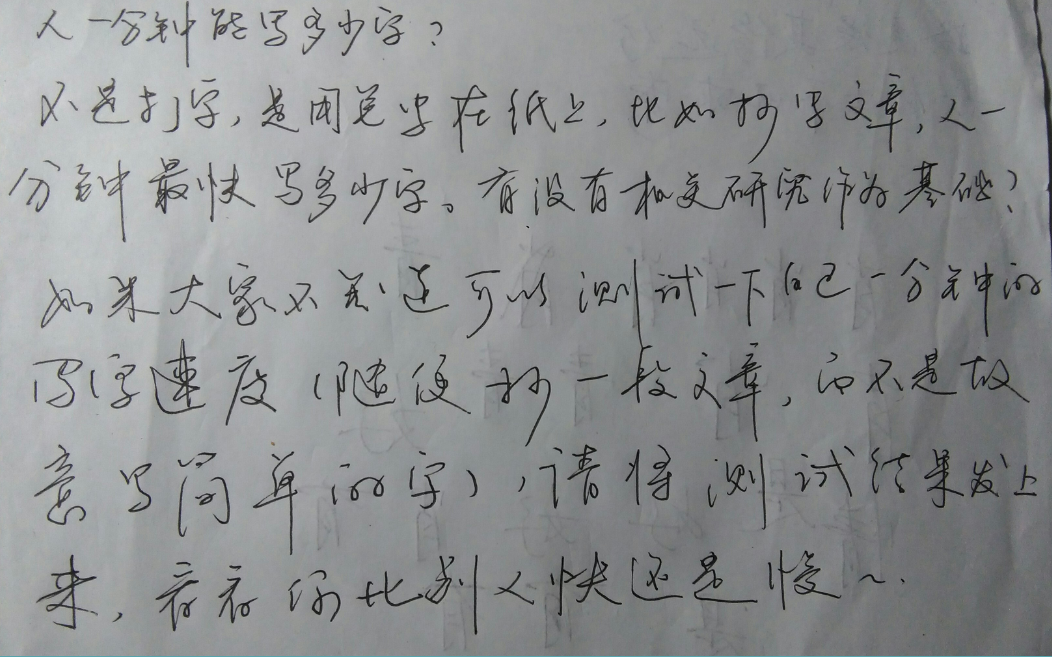 人一分钟能写多少字？
不是打字，是用笔写在纸上，比如抄写文章，人一
分钟最快写多少字。有没有相关研究作为基础？
如果大家不忙还可以测试一下自己一分钟的
写字速度（随便抄一段文章，而不是故
意写简单的字），请将测试结果发上
来，看看你比别人快还是慢～.